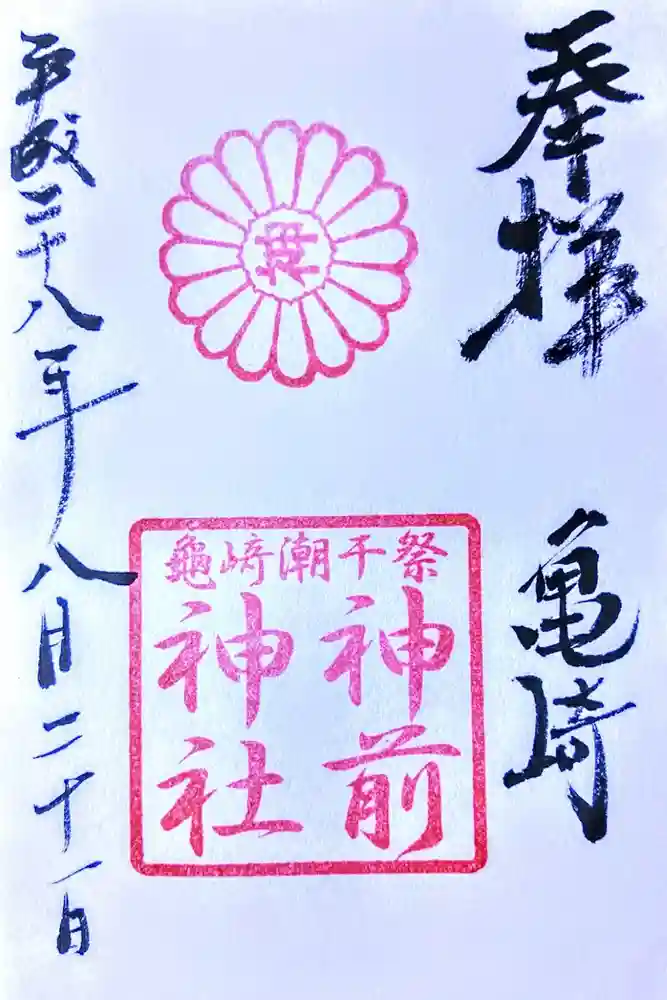 奉拝
亀崎
龜崎潮干祭
神前
神社
平成二十八年八月二十一日